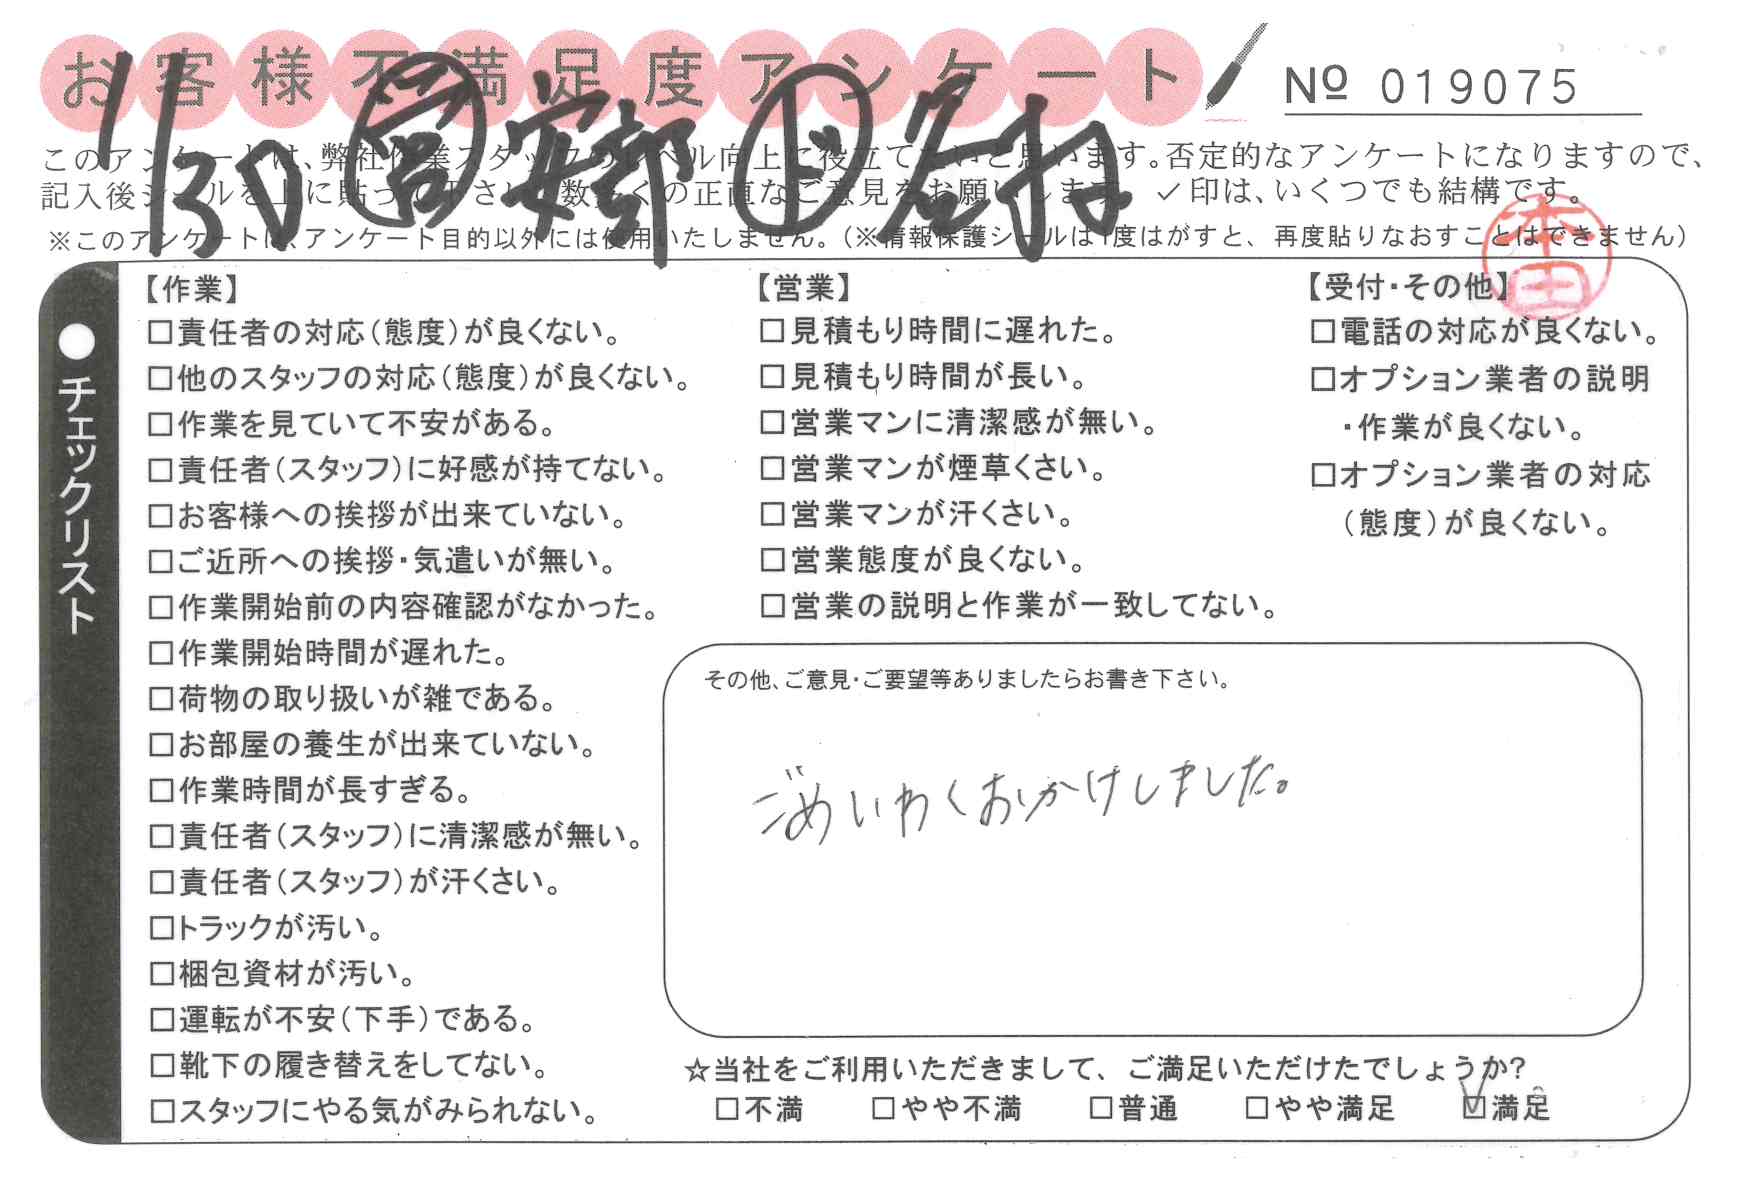 お客様不満足度アンケート
№ 019075
1/30 営 安部 ド 名村
このアンケートは、弊社作業スタッフのレベル向上に役立てたいと思います。否定的なアンケートになりますので、
記入後シールを上に貼って下さい。数多くの正直なご意見をお願いします。✓印は、いくつでも結構です。
※このアンケートは、アンケート目的以外には使用いたしません。(※情報保護シールは1度はがすと、再度貼りなおすことはできません)
本田
●チェックリスト
【作業】
□責任者の対応(態度)が良くない。
□他のスタッフの対応(態度)が良くない。
□作業を見ていて不安がある。
□責任者(スタッフ)に好感が持てない。
□お客様への挨拶が出来ていない。
□ご近所への挨拶・気遣いが無い。
□作業開始前の内容確認がなかった。
□作業開始時間が遅れた。
□荷物の取り扱いが雑である。
□お部屋の養生が出来ていない。
□作業時間が長すぎる。
□責任者(スタッフ)に清潔感が無い。
□責任者(スタッフ)が汗くさい。
□トラックが汚い。
□梱包資材が汚い。
□運転が不安(下手)である。
□靴下の履き替えをしてない。
□スタッフにやる気がみられない。
【営業】
□見積もり時間に遅れた。
□見積もり時間が長い。
□営業マンに清潔感が無い。
□営業マンが煙草くさい。
□営業マンが汗くさい。
□営業態度が良くない。
□営業の説明と作業が一致してない。
【受付・その他】
□電話の対応が良くない。
□オプション業者の説明
・作業が良くない。
□オプション業者の対応
(態度)が良くない。
その他、ご意見・ご要望等ありましたらお書き下さい。
ごめいわくおかけしました。
☆当社をご利用いただきまして、ご満足いただけたでしょうか?
□不満 □やや不満 □普通 □やや満足 ☑満足